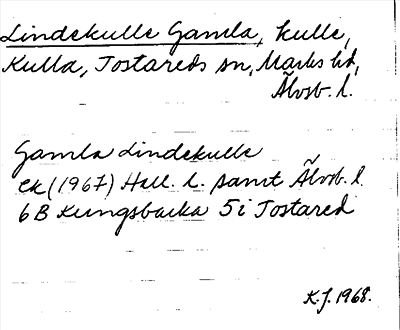 Lindekulle Gamla, kulle,
Kulla, Tostareds sn, Marks hd,
Älvsb. l.
Gamla Lindekulle
ek (1967) Hall. l. samt Älvsb. l.
6B Kungsbacka 5i Tostared
K.J. 1968.